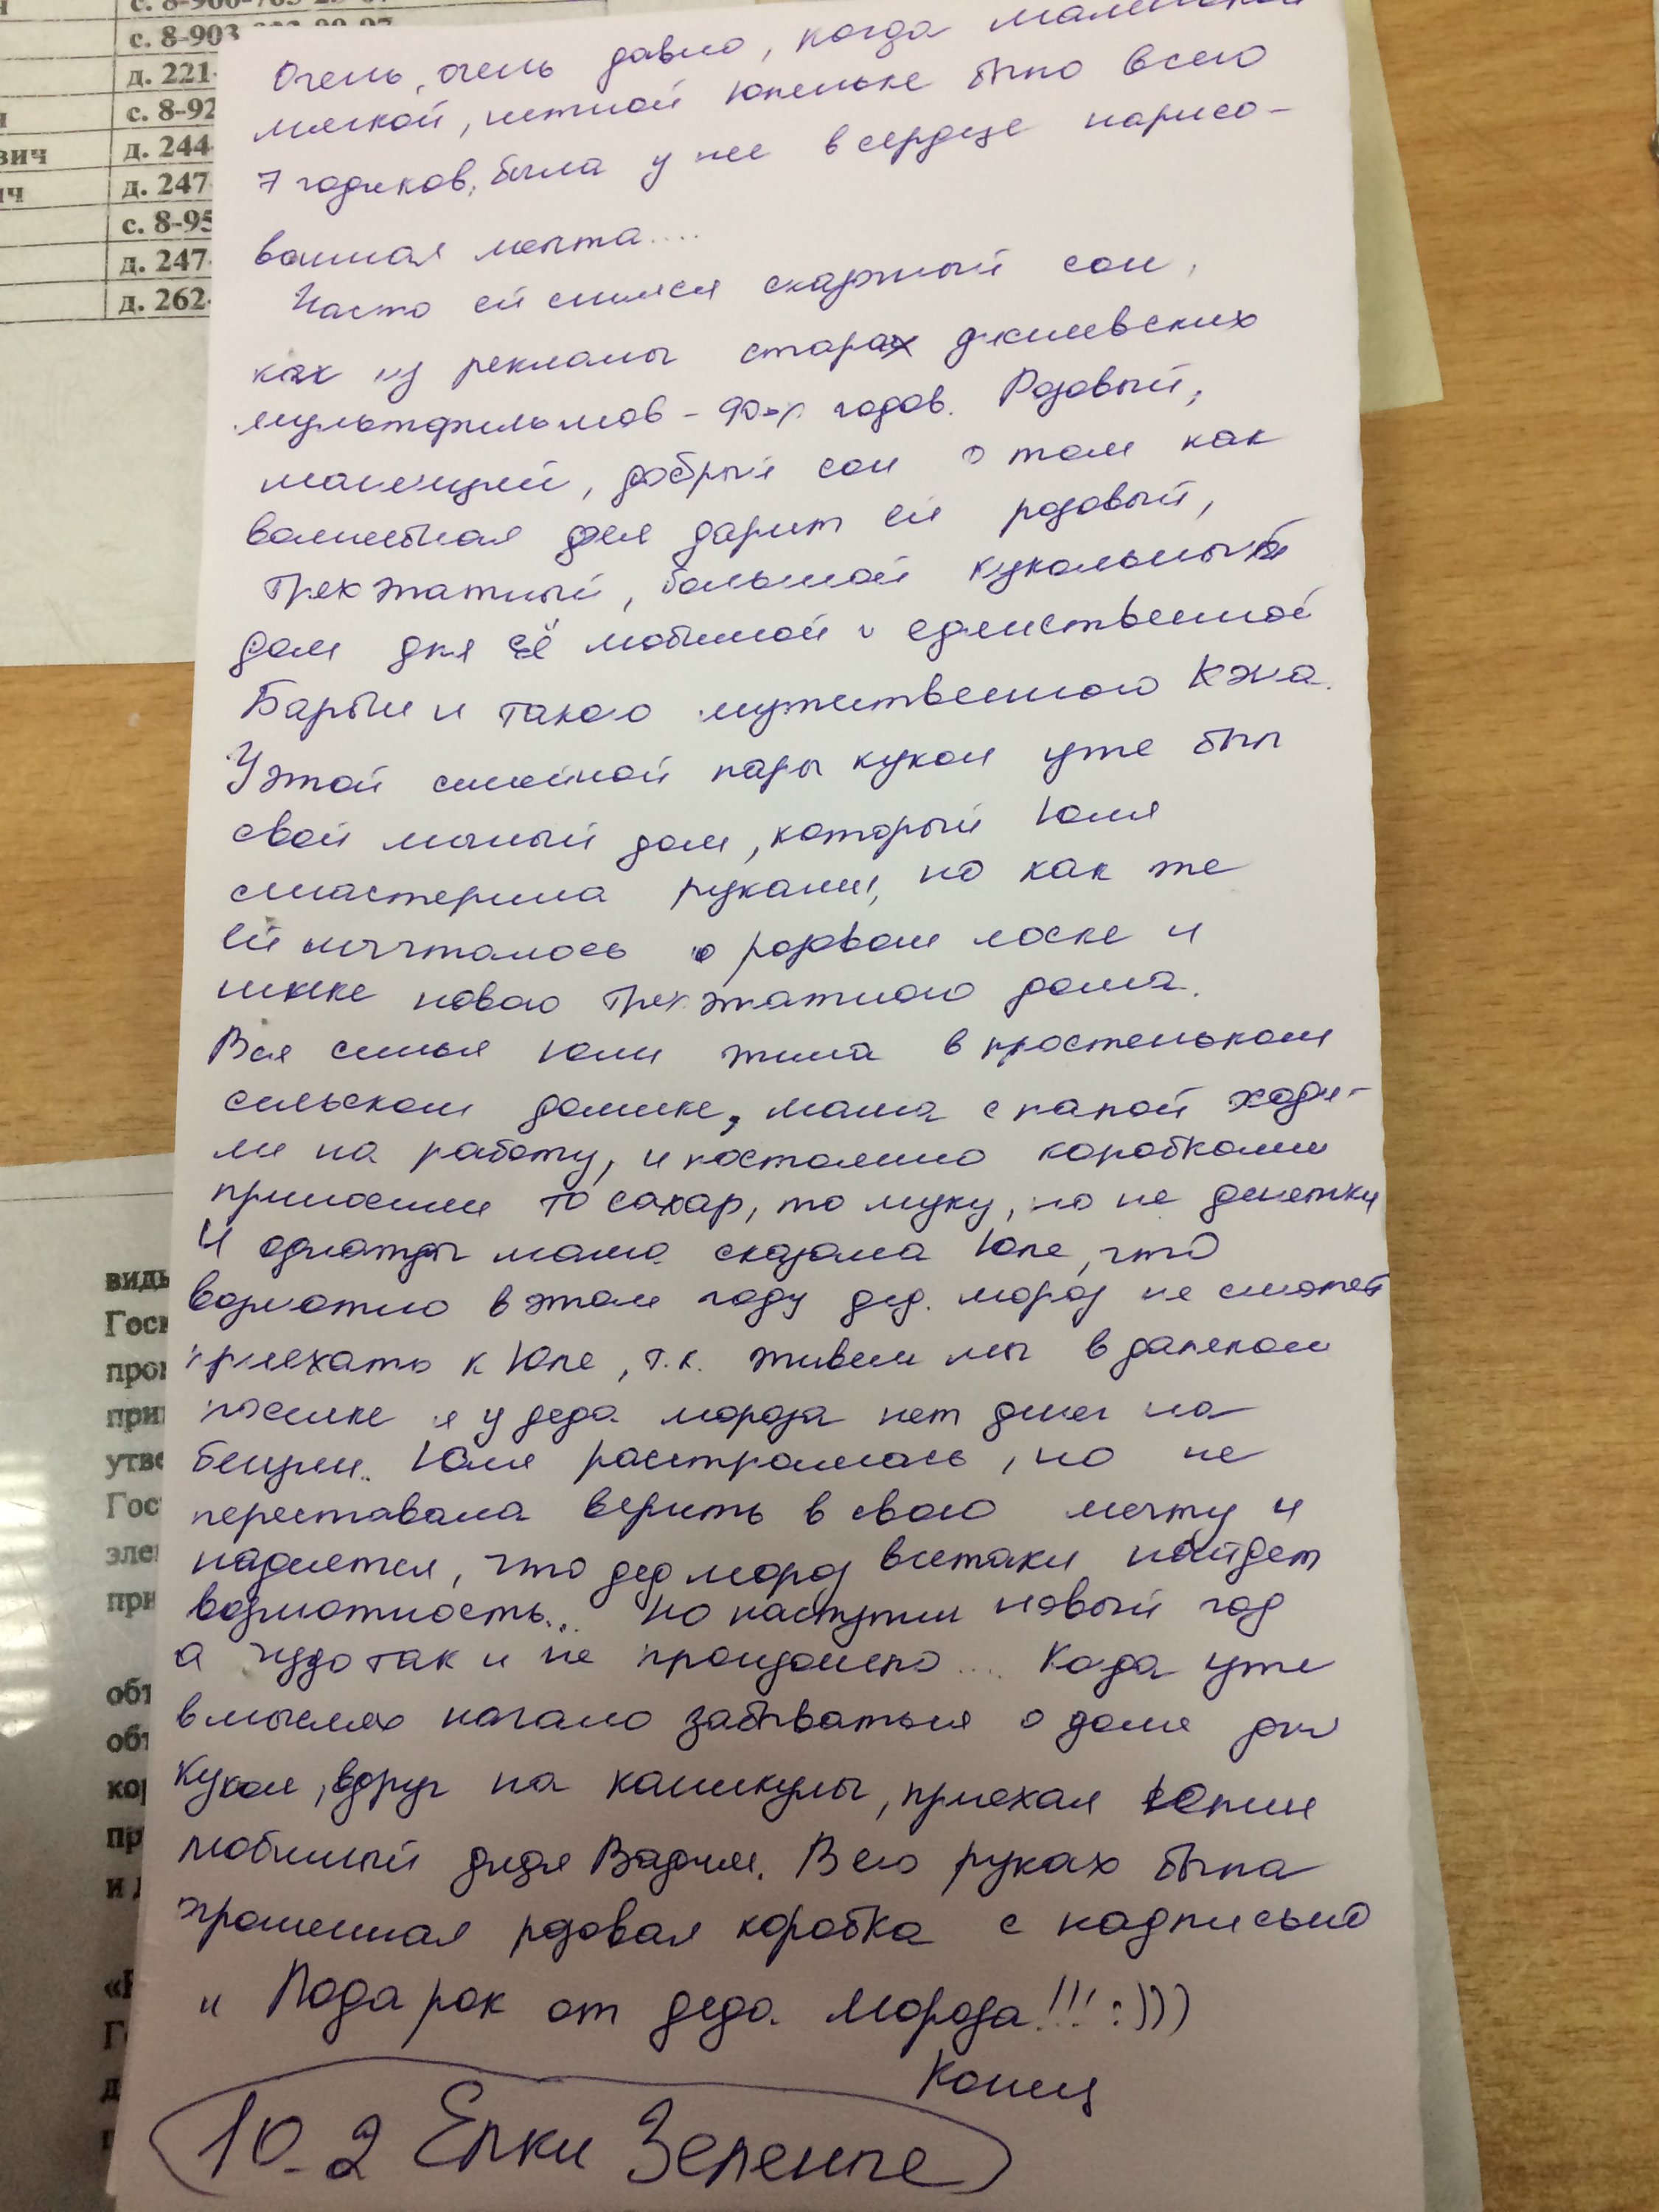 с. 8-903
д. 221-
с. 8-92
вич д. 244-
ич д. 247
с. 8-95
д. 247-
д. 262-
Очень, очень давно, когда маленькой
мягкой, нежной Юленьке было всего
7 годиков, была у нее в сердце нарисо-
ванная мечта....
Часто ей снился сказочный сон,
как из рекламы старах диснеевских
мультфильмов - 90-х годов. Розовый,
манящий, добрый сон о том как
волшебная фея дарит ей розовый,
трехэтажный, большой кукольный
дом для её любимой и единственной
Барби и такого мужественного Кэна.
У этой семейной пары кукол уже был
свой милый дом, который Юля
смастерила руками, но как же
ей мечталось о розовом лоске и
шике нового трехэтажного дома.
Вся семья Юли жила в простеньком
сельском домике, мама с папой ходи-
ли на работу, и постоянно коробками
приносили то сахар, то муку, но не денежки
И однажды мама сказала Юле, что
возможно в этом году дед мороз не сможет
приехать к Юле, т.к. живем мы в далеком
поселке и у деда мороза нет денег на
бензин.. Юля расстроилась, но не
переставала верить в свою мечту и
надеятся, что дед мороз всетаки найдет
возможность... Но наступил новый год
а чудо так и не произошло.... Когда уже
в мыслях начало забываться о доме для
кукол, вдруг на каникулы, приехал Юлин
любимый дядя Вадим. В его руках была
огромная розовая коробка с надписью
" Подарок от деда мороза!!! :)))
Конец
10.2 Елки Зеленые
видь
Госк
про
при
утве
Гос
эле
при
объ
объ
кор
пр
и д